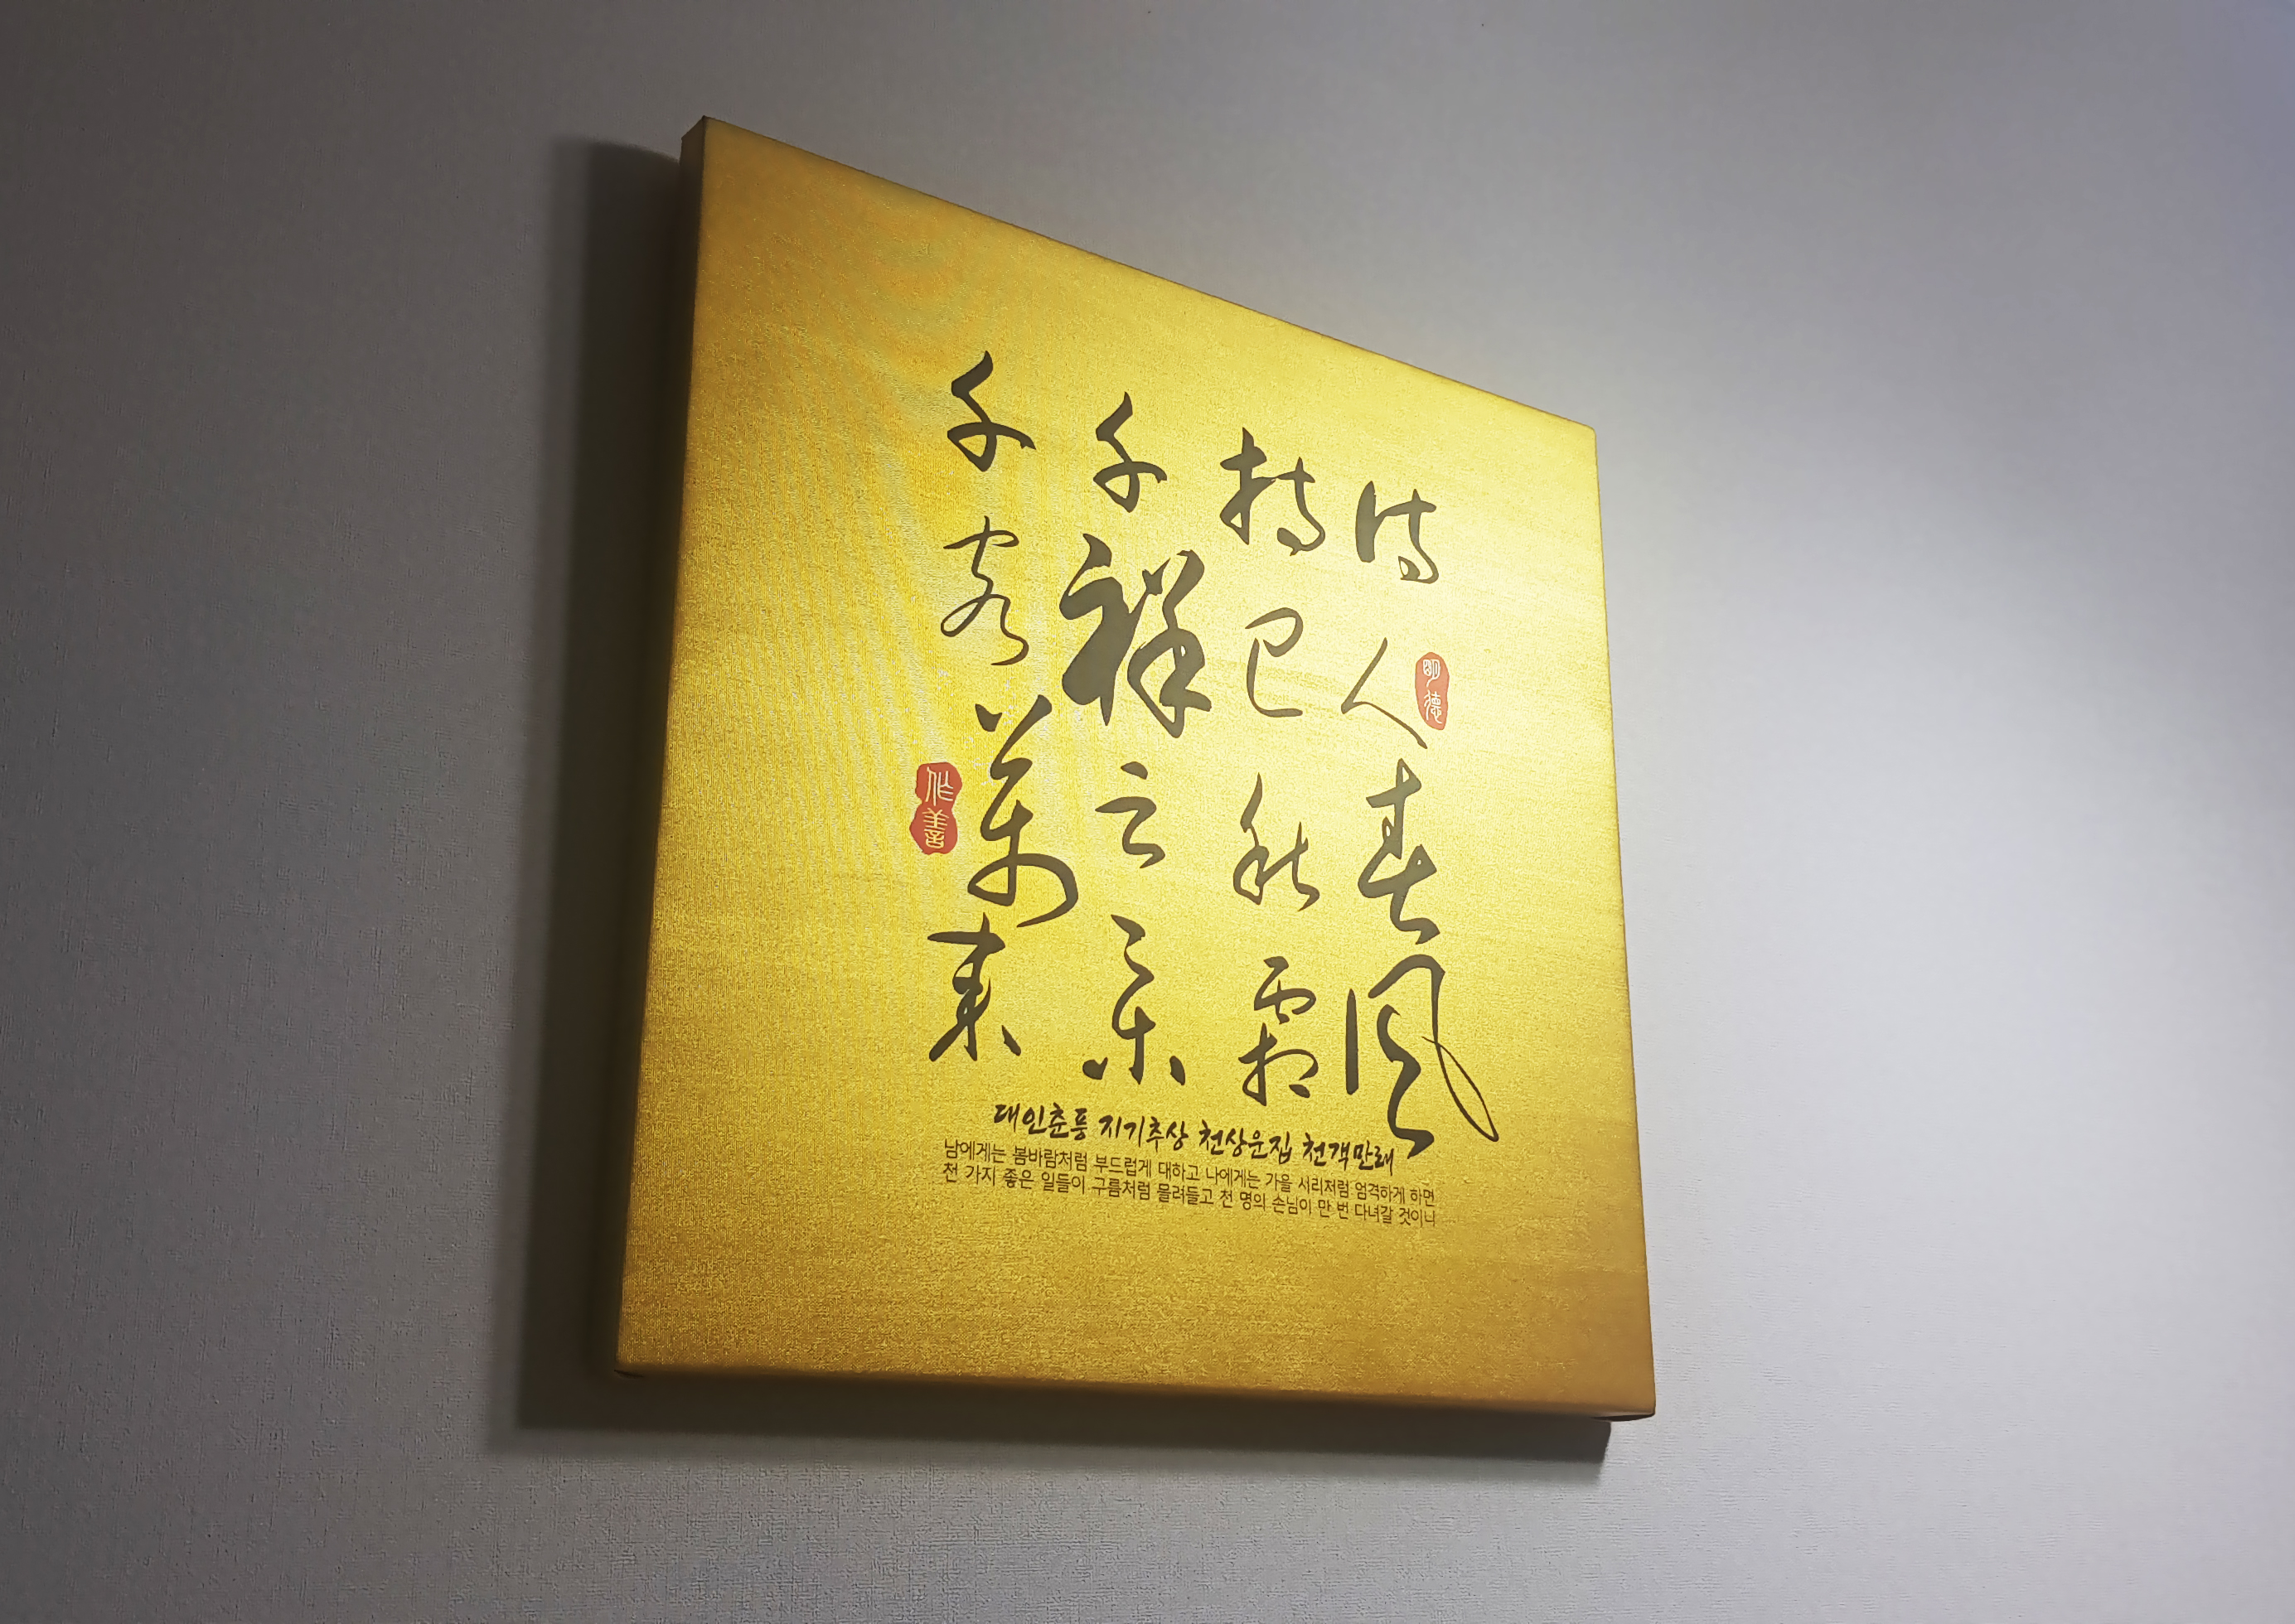 待人春風
持己秋霜
千祥雲集
千客萬來
明德
作善
대인춘풍 지기추상 천상운집 천객만래
남에게는 봄바람처럼 부드럽게 대하고 나에게는 가을 서리처럼 엄격하게 하면
천 가지 좋은 일들이 구름처럼 몰려들고 천 명의 손님이 만 번 다녀갈 것이니